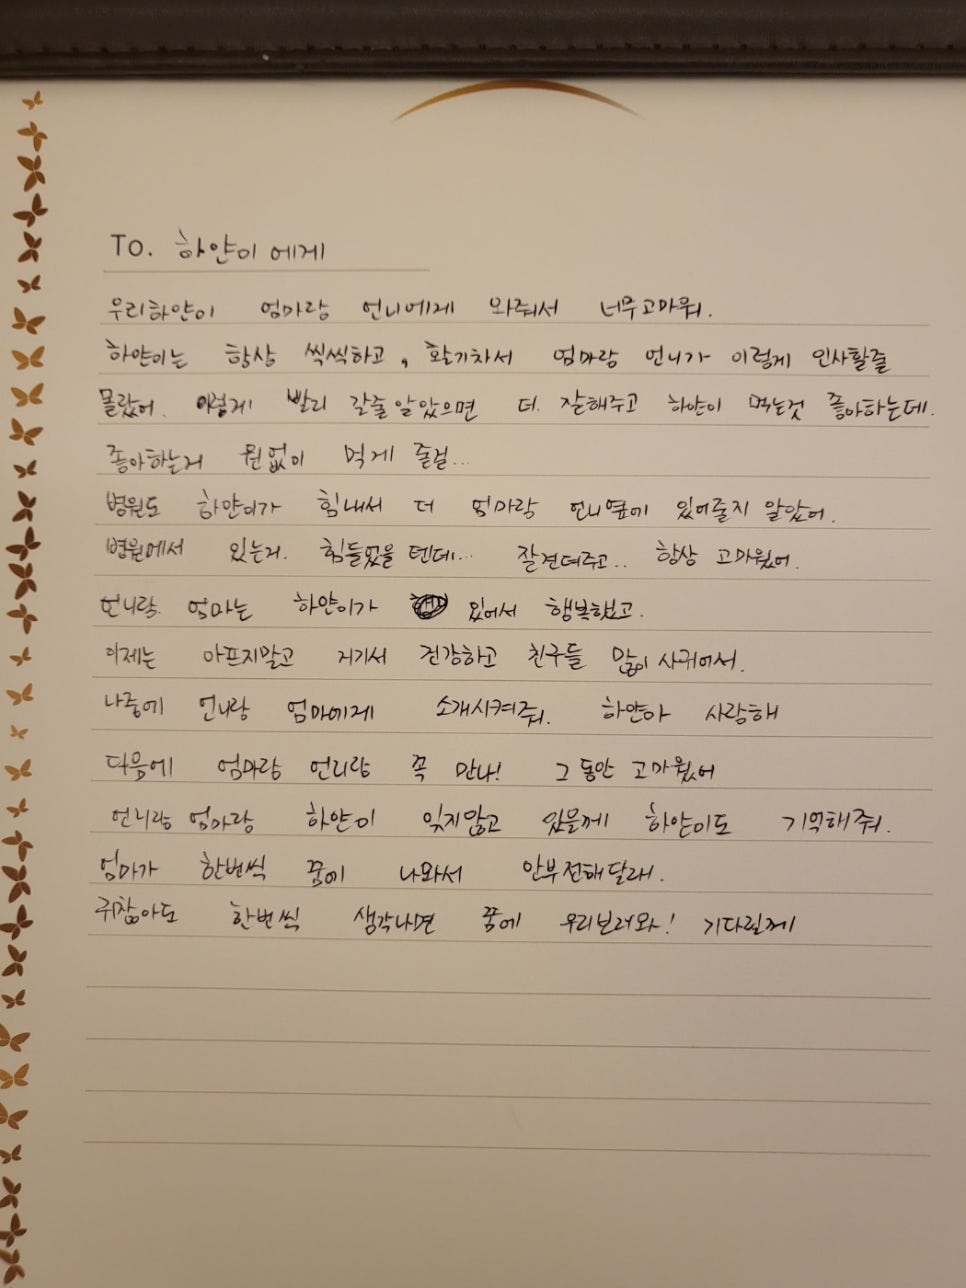 To. 하얀이 에게
우리하얀이 엄마랑 언니에게 와줘서 너무고마워.
하얀이는 항상 씩씩하고, 활기차서 엄마랑 언니가 이렇게 인사할줄
몰랐어. 이렇게 빨리 갈줄알았으면 더. 잘해주고 하얀이 먹는것 좋아하는데.
좋아하는거 원없이 먹게 줄걸...
병원도 하얀이가 힘내서 더 엄마랑 언니옆에 있어줄지 알았어.
병원에서 있는거. 힘들었을 텐데... 잘견뎌주고.. 항상 고마웠어.
언니랑. 엄마는 하얀이가 있어서 행복했고.
이제는 아프지말고 거기서 건강하고 친구들 많이 사귀어서.
나중에 언니랑 엄마에게 소개시켜줘. 하얀아 사랑해
다음에 엄마랑 언니랑 꼭 만나! 그 동안 고마웠어
언니랑 엄마랑 하얀이 잊지않고 있을께 하얀이도 기억해줘.
엄마가 한번씩 꿈에 나와서 안부전해달래.
귀찮아도 한번씩 생각나면 꿈에 우리보러와! 기다릴게